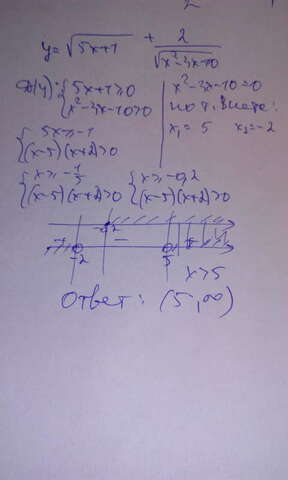 y = √(5x+1) + 2/√(x²-3x-10)
D(y): { 5x+1≥0
x²-3x-10>0
x²-3x-10=0
по т. Виета:
x₁ = 5 x₂=-2
{ 5x≥-1
(x-5)(x+2)>0
{ x≥-1/5
(x-5)(x+2)>0
{ x≥-0,2
(x-5)(x+2)>0
+ -2 -0,2 - 5 +
x>5
Ответ: (5,∞)